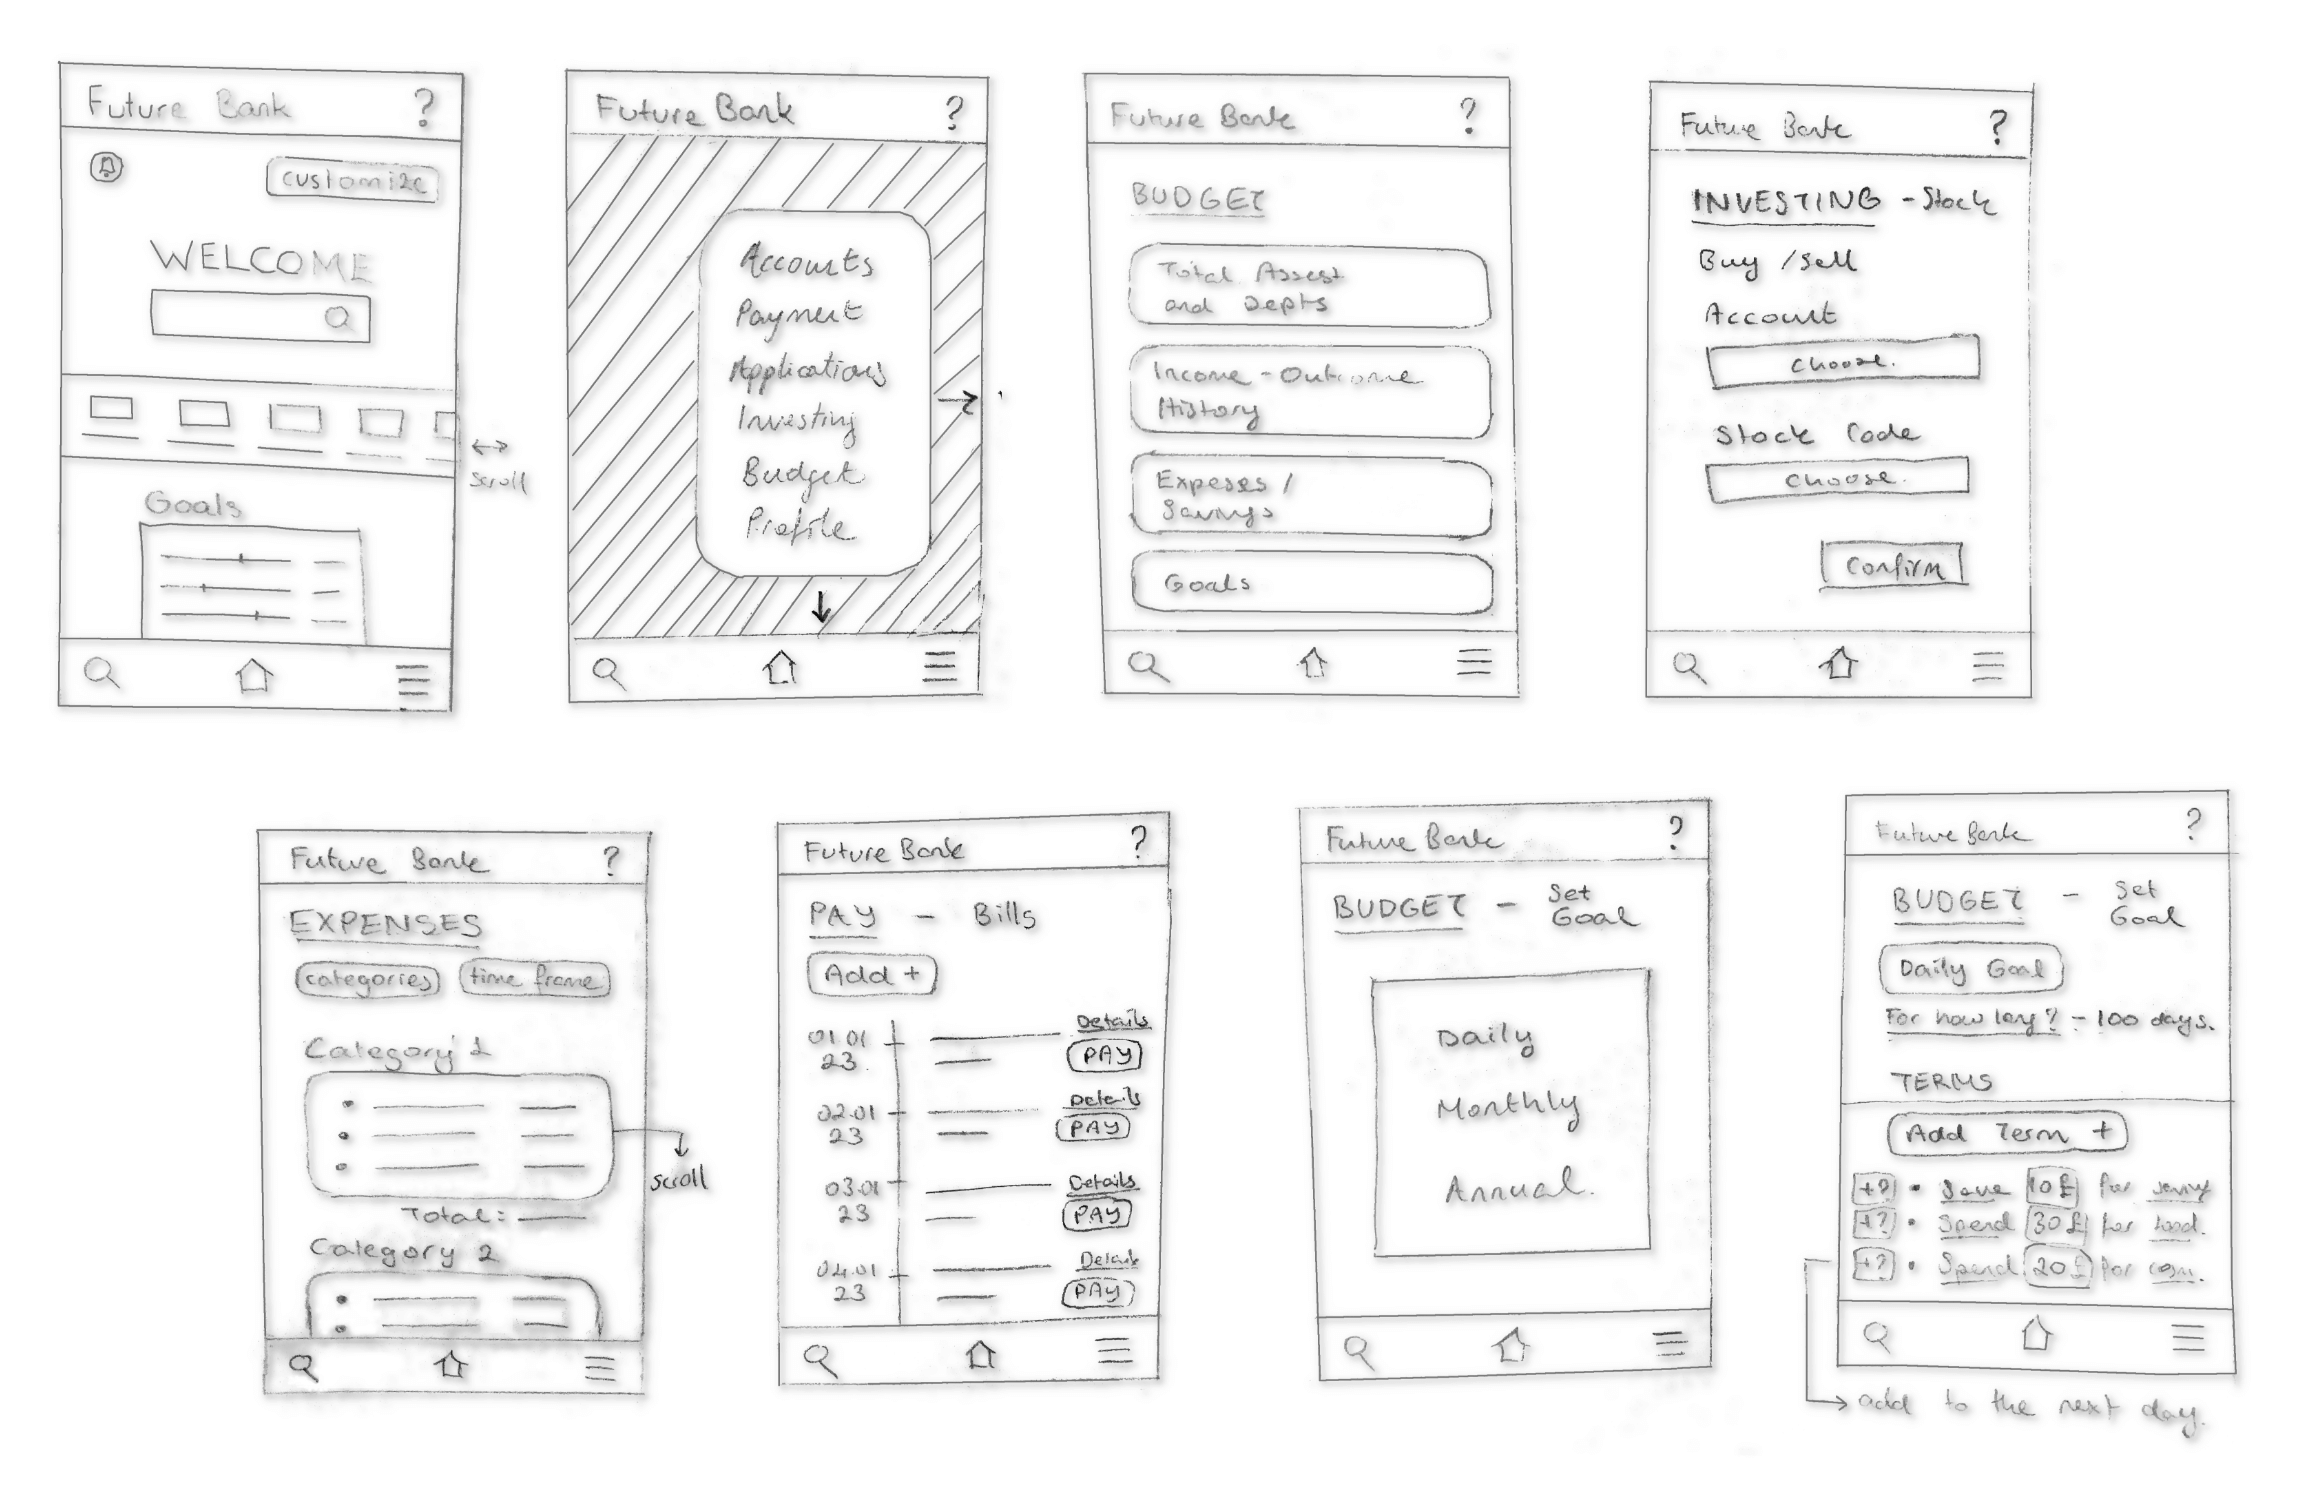 Future Bank ?
customize
WELCOME
scroll
Goals
Future Bank ?
Accounts
Payment
Applications
Investing
Budget
Profile
Future Bank ?
BUDGET
Total Assest
and Depts
Income - Outcome
History
Expeses /
Savings
Goals
Future Bank ?
INVESTING - Stock
Buy / Sell
Account
choose.
Stock Code
choose.
Confirm
Future Bank ?
EXPENSES
categories time frame
Category 1
scroll
Total:
Category 2
Future Bank ?
PAY - Bills
Add +
Details
01.01
23 PAY
Details
02.01
23 PAY
Details
03.01
23 PAY
Details
04.01
23 PAY
Future Bank ?
BUDGET - Set
Goal
Daily
Monthly
Annual.
Future Bank ?
BUDGET - Set
Goal
Daily Goal
For how long? - 100 days.
TERMS
Add Term +
+? • Save 10£ for
+? • Spend 30£ for food.
+? • Spend 20£ for
add to the next day.